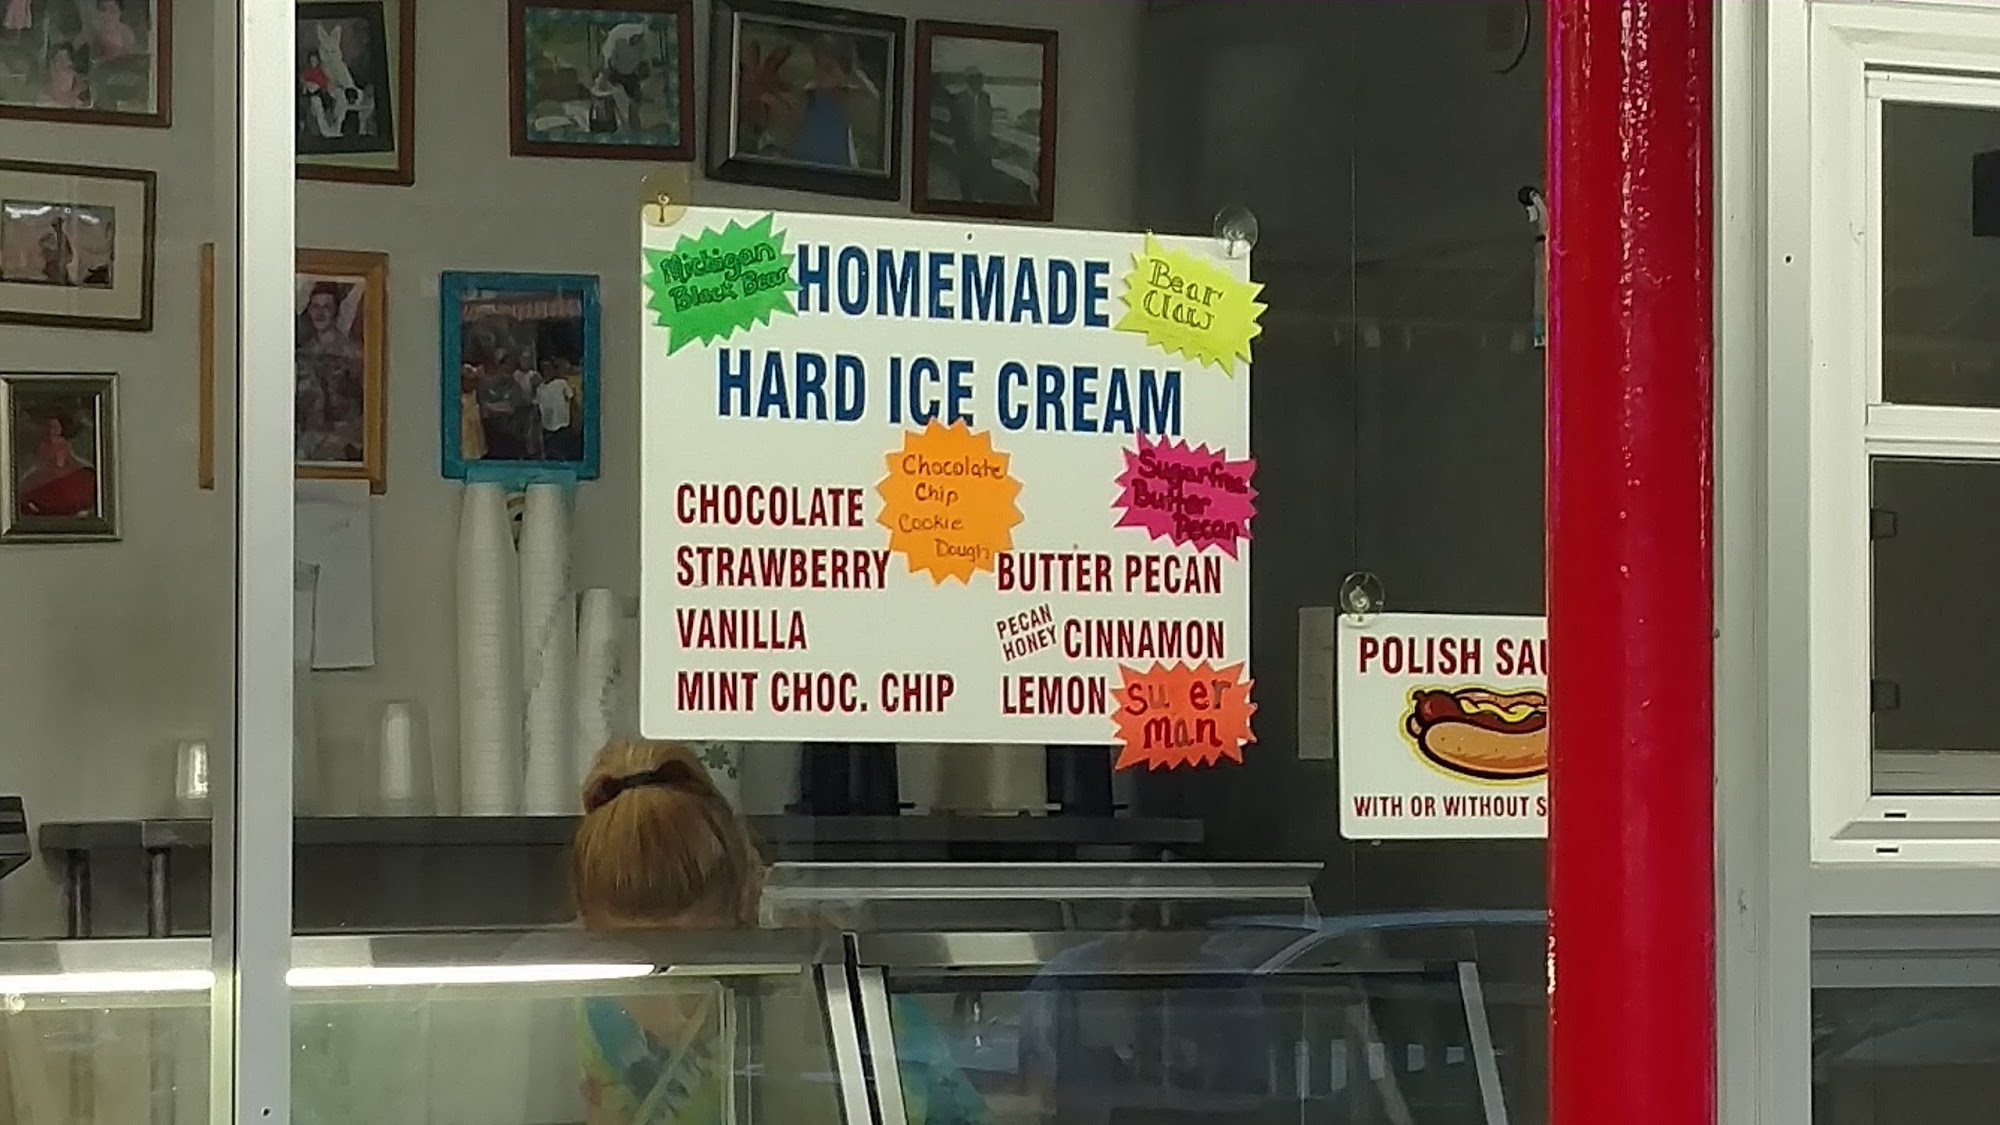 Michigan
Black Bear
HOMEMADE
Bear
Claw
HARD ICE CREAM
Chocolate
Chip
Cookie
Dough
Sugarfree
Butter
Pecan
CHOCOLATE
STRAWBERRY
VANILLA
MINT CHOC. CHIP
BUTTER PECAN
PECAN
HONEY
CINNAMON
LEMON
su er
man
POLISH SAU
WITH OR WITHOUT S